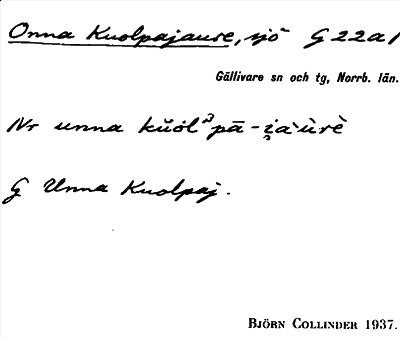 Onna Kuolpajaure, sjö G 22a1
Gällivare sn och tg, Norrb. län.
Nr unna
G Unna Kuolpaj.
BJÖRN COLLINDER 1937.